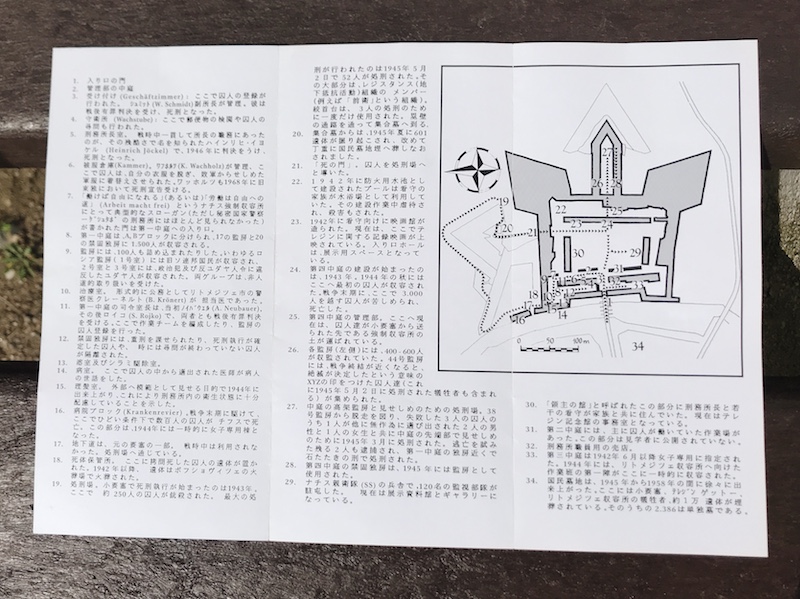 1. 入り口の門
2. 管理部の中庭
3. 受け付け (Geschäftzimmer): ここで囚人の登録が
行われた。 ｼｭﾐｯﾄ (W. Schmidt)副所長が管理。彼は
戦後有罪判決を受け、死刑となった。
4. 守衛所 (Wachstube): ここで郵便物の検閲や囚人の
尋問も行われた。
5. 刑務所長室。 戦時中一貫して所長の職務にあった
のが、その残酷さで名を知られたハインリヒ・イヨ
ケル (Heinrich Jöckel)で、1946年に判決をうけ、
死刑となった。
6. 被服倉庫(Kammer), ﾜﾌﾎﾙﾂ(K. Wachholz)が管理、こ
こで囚人は、自分の衣服を脱ぎ、敗軍からせしめた
軍服に着替えさせられた。ワッホルツも1968年に旧
東独において死刑宣告を受ける。
7. 「働けば自由になれる」(あるいは)「労働は自由への
道」(Arbeit macht frei) というナチス強制収容所
にとって典型的なスローガン(ただし秘密国家警察
の刑務所にはほとんど見られなかった)
が書かれた門は第一中庭への入り口。
8. 第一中庭は、A,Bブロックに分けられ、17の監房と20
の禁固独房に 1.500人が収容される。
9. 監房には、100人も詰め込まれたりした。いわゆるロ
シア監房 (1号室) には旧ソ連邦国民が収容され、
2号室と3号室には、政治犯及び反ユダヤ人令に違
反したユダヤ人が収容された。両グループは、非人
道的取り扱いを受けた。
10. 治療室。 形式的に公務としてリトメジィエ市の警
察医クレーネルト (B. Krönert) が 担当医であった。
11. 第一中庭の司令室長は、当初ﾉｲﾊﾞｳｴﾙ (A. Neubauer),
その後ロイコ (S. Rojko) で、両者とも戦後有罪判決
を受ける。ここで作業チームを編成したり、監房の
囚人登録を行った。
12. 禁固独房には、重刑を課せられたり、死刑執行が確
定した囚人や、 時には尋問が終わっていない囚人
が隔離された。
13. 浴室及びシラミ駆除室。
14. 病室。 ここで囚人の中から選出された医師が病人
の世話をした。
15. 理髪室。 外部へ模範として見せる目的で1944年に
出来上がり、これにより刑務所内の衛生状態に十分
配慮していることを示した。
16. 病院ブロック(Krankenrevier), 戦争末期に駆けて、
ここでひどい条件下で数百人の囚人が チフスで死
亡。この部分は、1944年には一時的に女子専用棟と
なった。
17. 地下道は、元の要塞の一部。 戦時中は利用されな
かった。処刑場へ通じている。
18. 死体保管所。 ここに拷問死した囚人の遺体が置か
れた。1942年以降、 遺体はボフショヴィツェの火
葬場で火葬された。
19. 処刑場。小要塞で死刑執行が始まったのは1943年。
ここで 約 250人の囚人が銃殺された。 最大の処
刑が行われたのは1945年 5 月
2日で 52人が処刑された。そ
の大部分は、レジスタンス(地
下抵抗活動)組織の メンバー
(例えば「前衛」という組織)。
絞首台は、 3人の処刑のため
に一度だけ使用された。 塁壁
の通路を通って集合墓へ到る。
20. 集合墓からは、1945年夏に601
遺体が掘り起こされ、改めて
丁重に国民墓地へ葬しなお
されました。
21. 「死の門」。 囚人を処刑場へ
と導いた。
22. 1942年に防火用水池とし
て建設されたプールは看守の
家族が水浴場として利用して
いた。その建設作業中虐待
され、殺害もされた。
23. 1942年に看守向けに映画館が
造られた。現在は、ここでテ
レジンに関する記録映画が上
映されている。入り口ホール
は、展示用スペースとなって
いる。
24. 第四中庭の建設が始まったの
は、1943年。1944年の秋には
ここへ最初の囚人が収容され
た。戦争末期にここで 3.000
人を越す囚人が苦しめられ、
死亡した。
25. 第四中庭の管理部。ここへ現
在は、囚人達が小要塞から送
られた先である強制収容所の
土が運ばれている。
26. 各監房(左側)には、400-600人
が収監されていた。44号監房
には、戦争終結が近くなると、
絶滅が決定したという意味の
XYZの印をつけた囚人達(これ
に1945年5月2日に処刑された犠牲者も含まれ
る)が集められた。
27. 中庭の高架監房と見せしめのための処刑場。38
号監房から脱走を図り、失敗した3人の囚人の
うち1人が他に無作為に選び出された2人の男
性と1人の女生と共に中庭の先端部で見せしめ
のために1945年3月に処刑された。逃亡を試み
た残る2人も逮捕され、第一中庭の独房近くで
石たたきの刑で処刑された。
28. 第四中庭の禁固独房は、1945年には監房として
使用された。
29. ナチス親衛隊(SS)の兵舎で、120名の監視部隊が
駐屯した。 現在は展示資料館とギャラリーに
なっている。
19 20 21 22 23 24 25 26 27 29 30 31
10 12 14 15 16 18 34
0 50 100 m
30. 「領主の館」と呼ばれたこの部分に刑務所長と若
干の看守が家族と共に住んでいた。現在はテレ
ジン記念館の事務室となっている。
31. 第二中庭には、主に囚人が働いていた作業場が
あった。この部分は見学者に公開されていない。
32. 刑務所職員用の売店。
33. 第三中庭は1942年6月以降女子専用に指定され
た。1944年には、リトメジツェ収容所へ向けた
作業班の第一陣がここに一時的に収容された。
34. 国民墓地は、1945年から1958年の間に徐々に出
来上がった。ここには小要塞、ﾃﾚｼﾞﾝ ゲットー、
リトメジツェ収容所の犠牲者、約1万 遺体が埋
葬されている。そのうちの2.386は単独墓である。